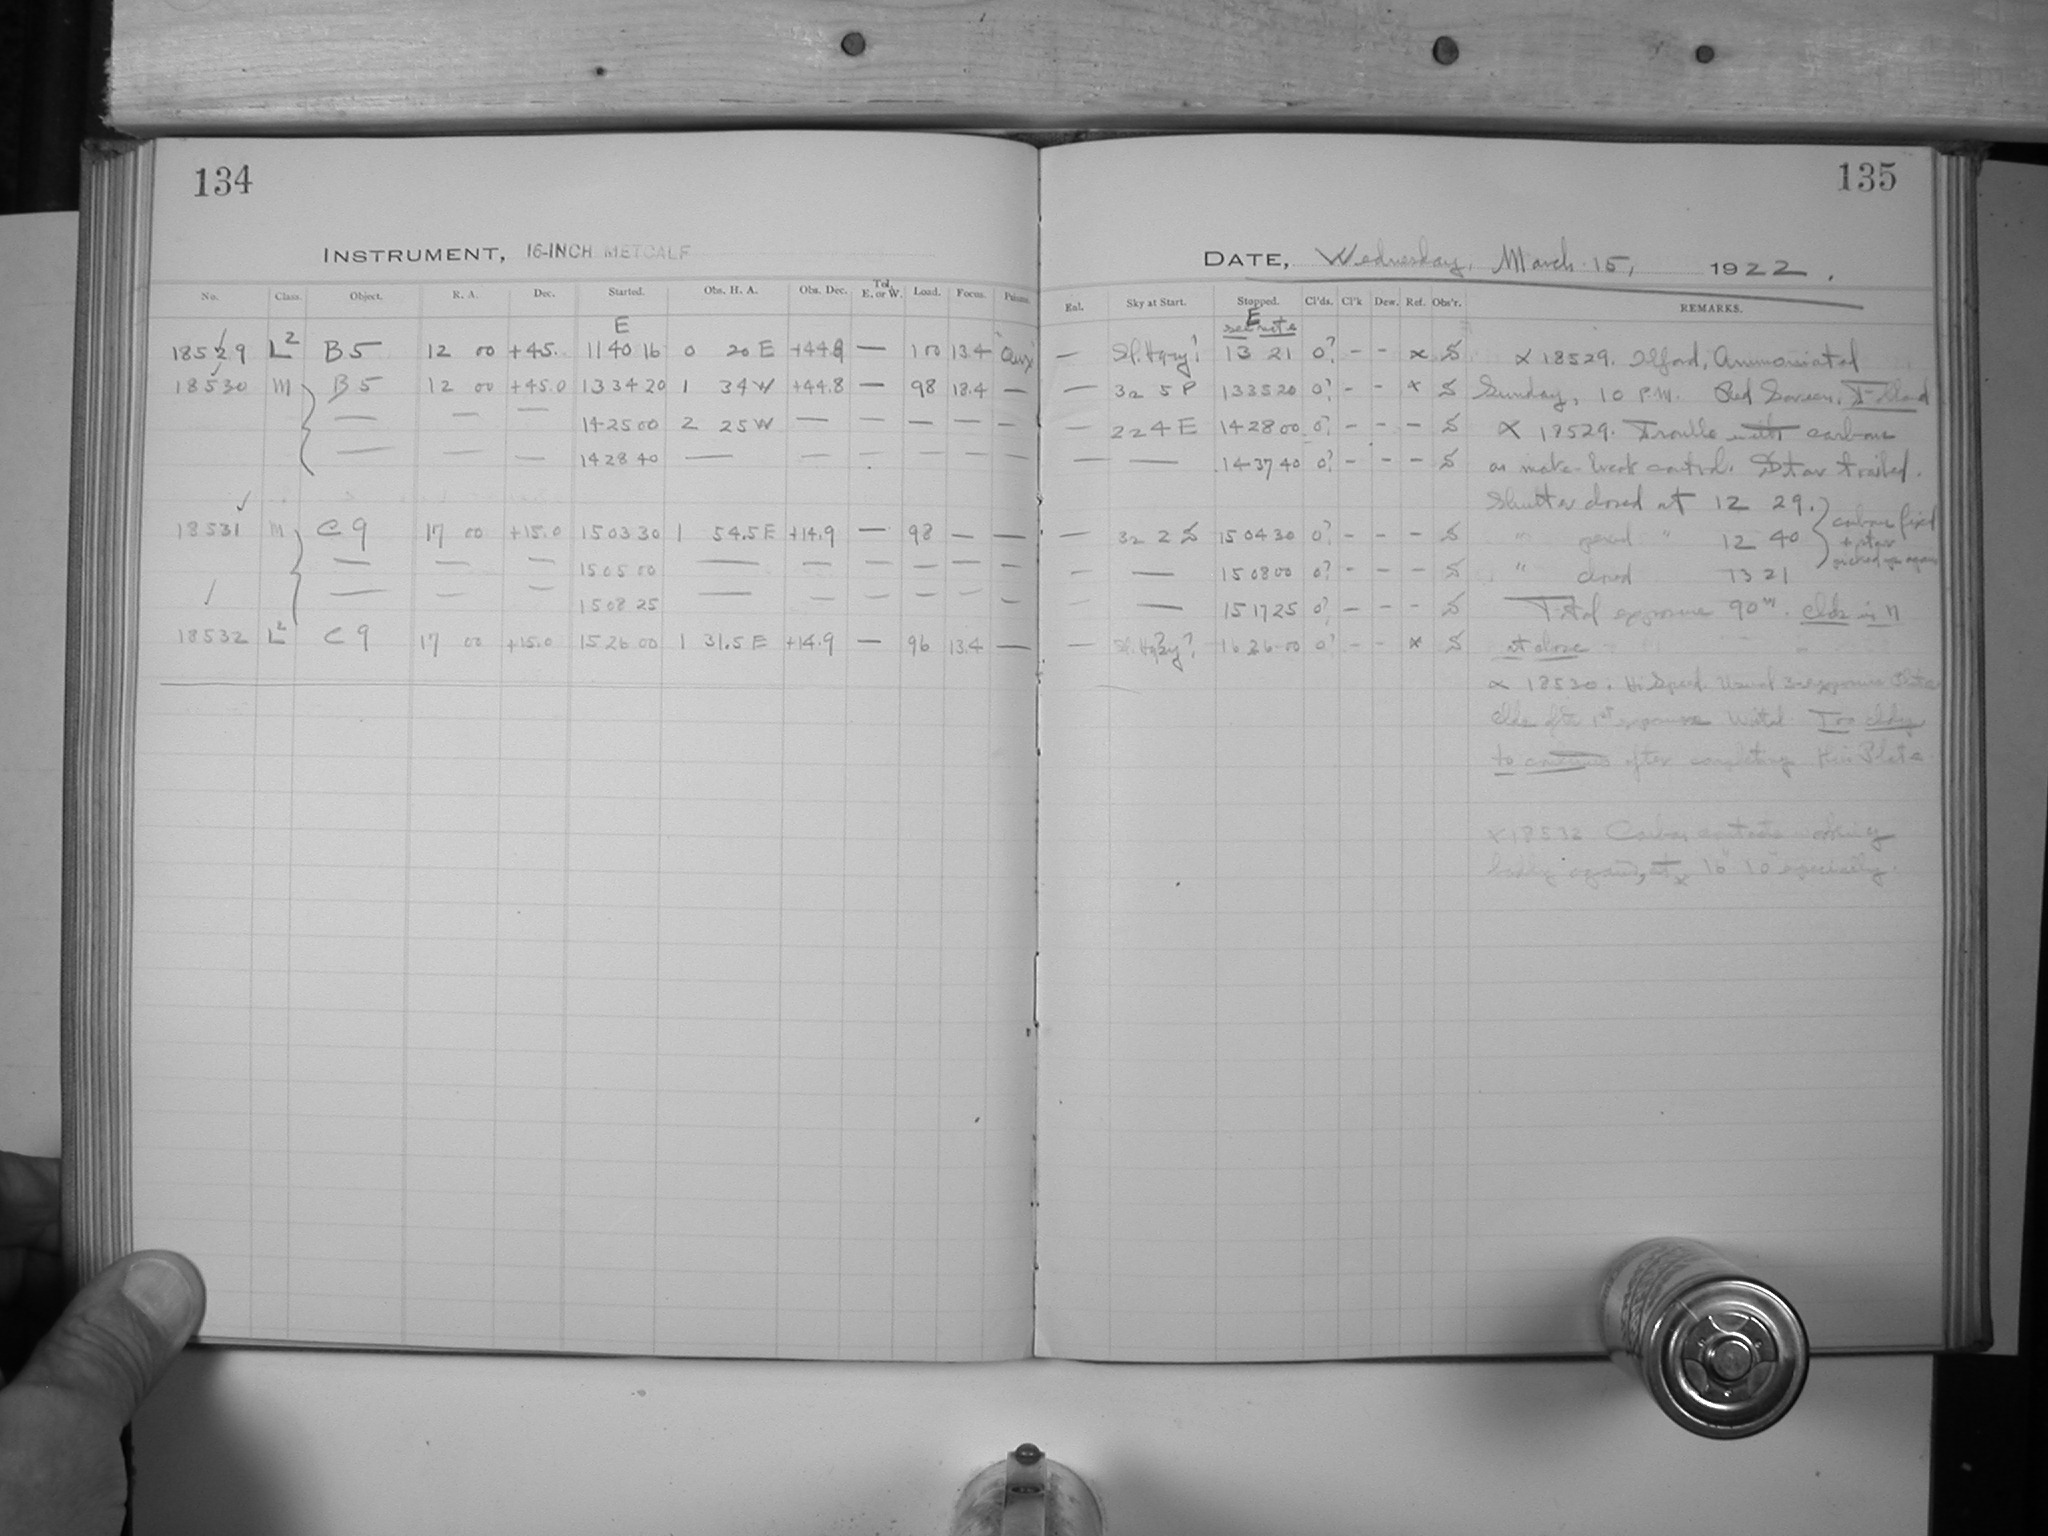 134
INSTRUMENT, 16-INCH METCALF
No. Class. Object. R. A. Dec. Started. Obs. H. A. Obs. Dec. Tel. E. or W. Load. Focus. Prisms.
E
18529 L² B5 12 00 +45. 11 40 16 0 20 E +44.8 — 100 13.4
18530 M B5 12 00 +45.0 13 34 20 1 34 W +44.8 — 98 13.4 —
— — — 14 25 00 2 25 W — — — — —
— — — 14 28 40 — — — — — —
18531 M C9 17 00 +15.0 15 03 30 1 54.5 E +14.9 — 98 — —
— — — 15 05 00 — — — — — —
— — — 15 08 25 — — — — — —
18532 L² C9 17 00 +15.0 15 26 00 1 31.5 E +14.9 — 96 13.4 —
135
DATE, Wednesday, March 15, 1922.
Enl. Sky at Start. Stopped. Cl'ds. Cl'k Dew. Ref. Obs'r. REMARKS.
E
see note
— Sl. Hazy? 13 21 0? - - x S x 18529. Ilford, Ammoniated
— 3a 5 P 13 35 20 0? - - x S Sunday, 10 P.M. Red Screen,
— 2 2 4 E 14 28 00 0? - - - S x 18529. Trouble with carbons
— — 14 37 40 0? - - - S on make-break control. Star trailed.
Shutter closed at 12 29.
— 3a 2 S 15 04 30 0? - - - S " opened " 12 40
carbons fixed
+ star
picked up again
— — 15 08 00 0? - - - S " closed 13 21
— — 15 17 25 0? - - - S Total exposure 90ᵐ. Clds in N
— Sl. Hazy? 16 26 00 0? - - x S at close
x 18530. Hi Speed. Usual 3-exposure Plate
Clds after 1st exposure Too cldy
to continue after completing this Plate
x 18532 Carbon contacts working
badly again, at 16 10 especially.